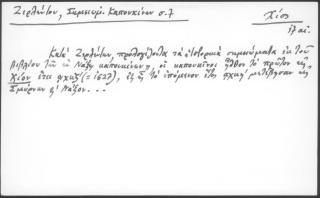 Ζερλέντου, Σημειώμ. Καπουκίνων σ. 7
Χίος
17 αἰ.
Κατὰ Ζερλέντην, προλογίζοντα τὰ ἱστορικὰ σημειώματα ἐκ τοῦ
βιβλίου τῶν ἐν Νάξῳ καπουκίνων, οἱ καπουκῖνοι ἦλθον τὸ πρῶτον εἰς
Χίον ἔτει αχκζ (= 1627), ἐξ ἧς τὸ ἑπόμενον ἔτος αχκη μετέβησαν εἰς
Σμύρνην κ' Νάξον...